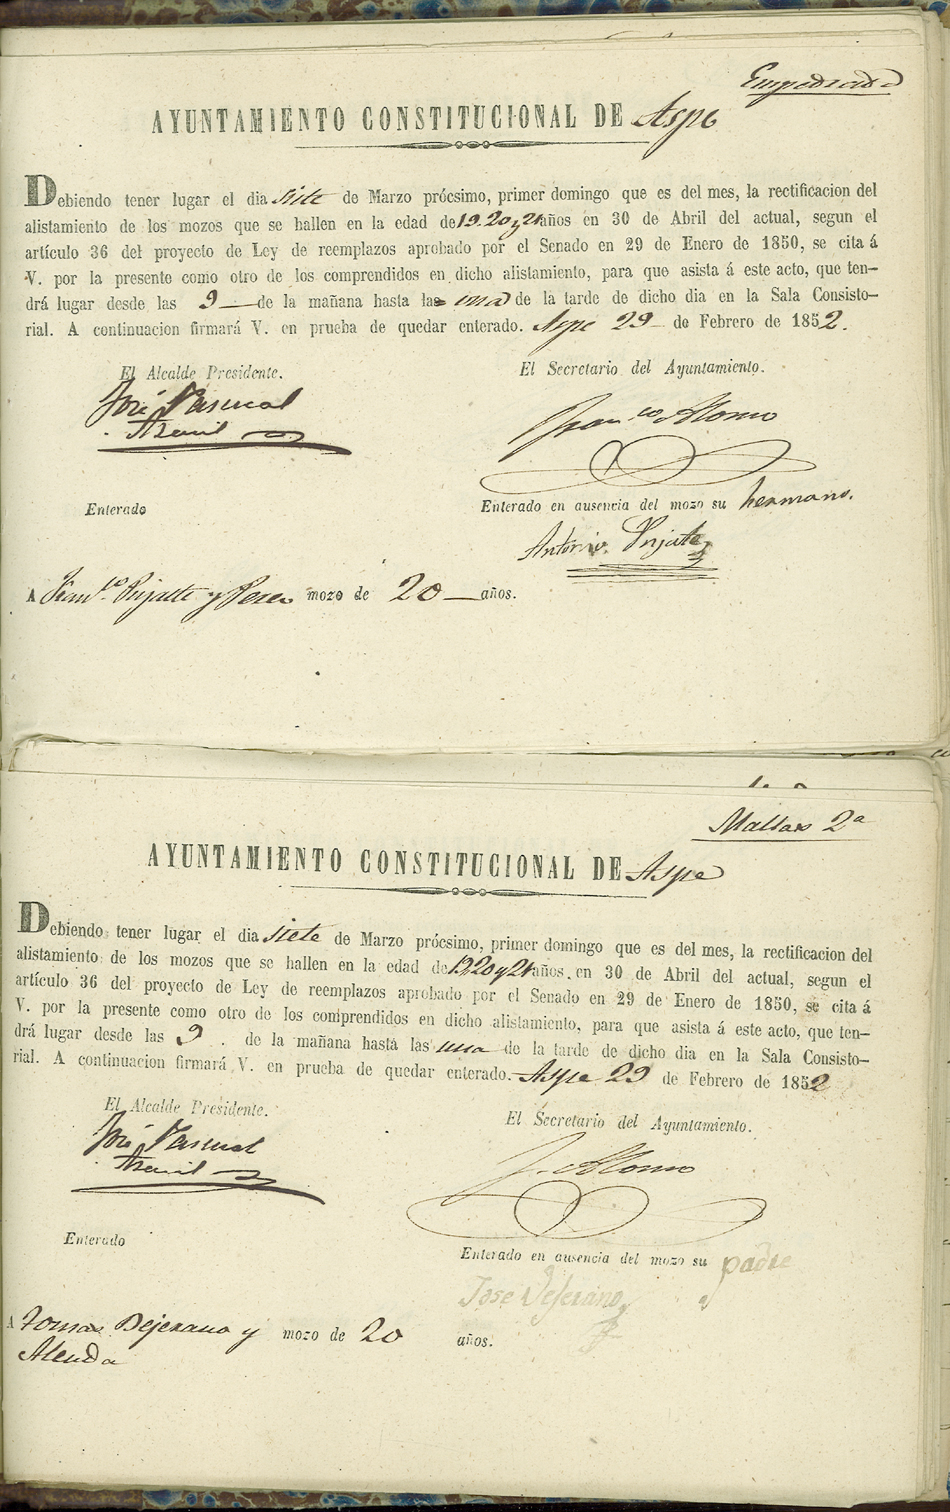 Empedrado
AYUNTAMIENTO CONSTITUCIONAL DE Aspe
Debiendo tener lugar el dia siete de Marzo prócsimo, primer domingo que es del mes, la rectificacion del
alistamiento de los mozos que se hallen en la edad de 19. 20 y 21 años en 30 de Abril del actual, segun el
artículo 36 del proyecto de Ley de reemplazos aprobado por el Senado en 29 de Enero de 1850, se cita á
V. por la presente como otro de los comprendidos en dicho alistamiento, para que asista á este acto, que ten-
drá lugar desde las 9 de la mañana hasta las una de la tarde de dicho dia en la Sala Consisto-
rial. A continuacion firmará V. en prueba de quedar enterado. Aspe 29 de Febrero de 1852.
El Alcalde Presidente.
El Secretario del Ayuntamiento.
José Pascual
Franco Alonso
Enterado
Enterado en ausencia del mozo su hermano.
Antonio Pujalte
A Franco Pujalte y Perez mozo de 20 años.
Mallas 2a
AYUNTAMIENTO CONSTITUCIONAL DE Aspe
Debiendo tener lugar el dia siete de Marzo prócsimo, primer domingo que es del mes, la rectificacion del
alistamiento de los mozos que se hallen en la edad de 19. 20 y 21 años en 30 de Abril del actual, segun el
artículo 36 del proyecto de Ley de reemplazos aprobado por el Senado en 29 de Enero de 1850, se cita á
V. por la presente como otro de los comprendidos en dicho alistamiento, para que asista á este acto, que ten-
drá lugar desde las 9 de la mañana hasta las una de la tarde de dicho dia en la Sala Consisto-
rial. A continuacion firmará V. en prueba de quedar enterado. Aspe 29 de Febrero de 1852
El Alcalde Presidente.
El Secretario del Ayuntamiento.
José Pascual
J. Alonso
Enterado
Enterado en ausencia del mozo su padre
Jose
A Tomas Bejerano y mozo de 20 años.
Alenda